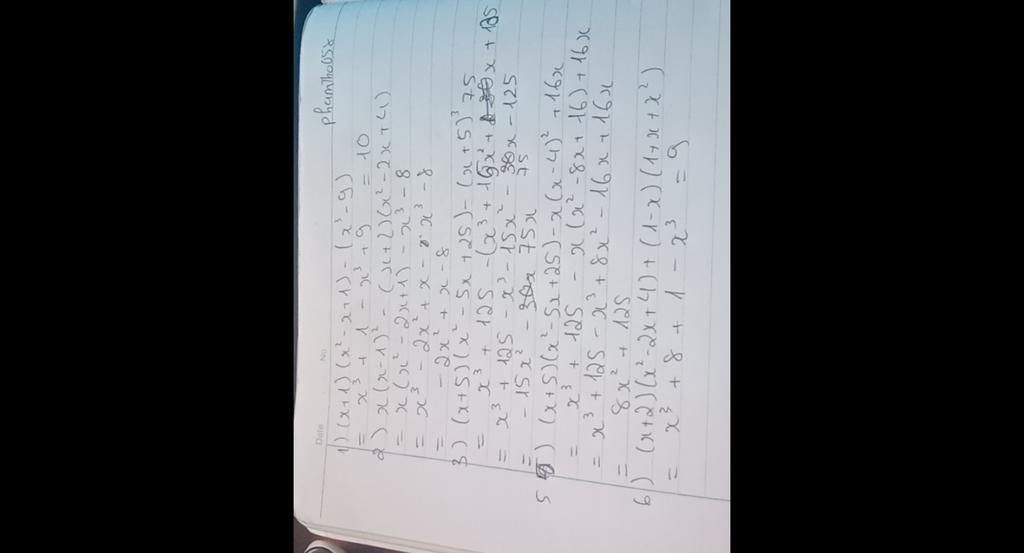 Date No
phamtho058
1) (x+1)(x²-x+1) - (x³-9)
= x³ + 1 - x³ + 9 = 10
2) x(x-1)² - (x+2)(x²-2x+4)
= x(x²-2x+1) - x³-8
= x³ - 2x² + x - x³-8
= - 2x² + x - 8
3) (x+5)(x²-5x+25) - (x+5)³
= x³ + 125 - (x³ + 15x² + 75x + 125
= x³ + 125 - x³ - 15x² - 75x - 125
= - 15x² - 75x
5) (x+5)(x²-5x+25) - x(x-4)² + 16x
= x³ + 125 - x(x²-8x+16) + 16x
= x³ + 125 - x³ + 8x² - 16x + 16x
= 8x² + 125
6) (x+2)(x²-2x+4) + (1-x)(1+x+x²)
= x³ + 8 + 1 - x³ = 9